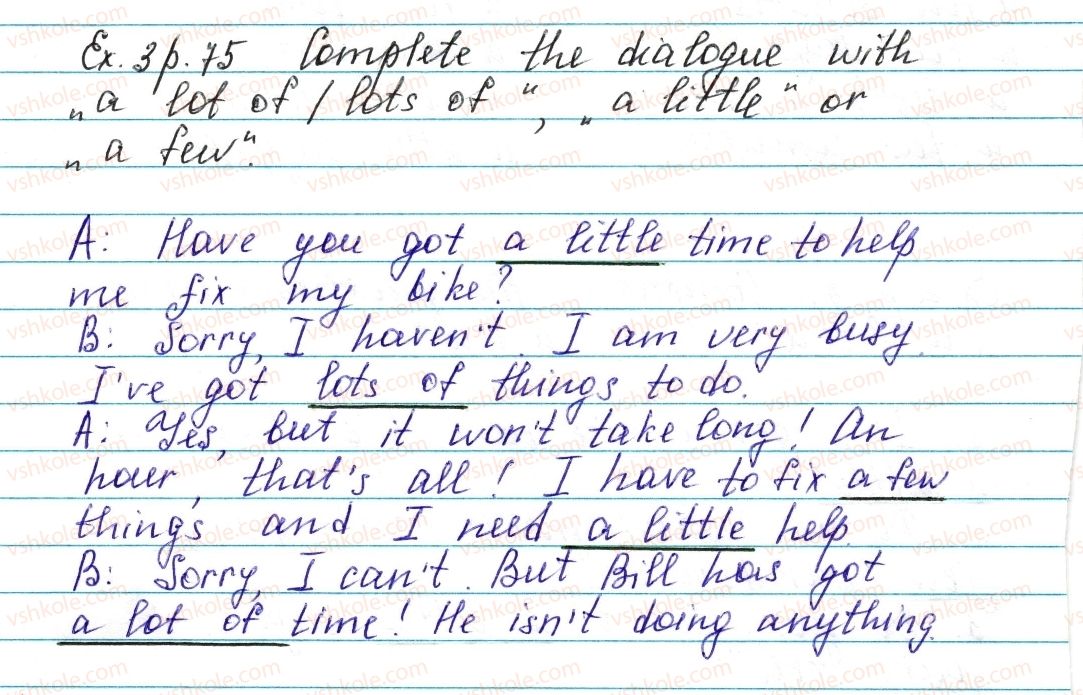 Ex. 3 p. 75 Complete the dialogue with
„a lot of / lots of“, „a little“ or
„a few“.
A: Have you got a little time to help
me fix my bike?
B: Sorry, I haven't. I am very busy.
I've got lots of things to do.
A: Yes, but it won't take long! An
hour, that's all! I have to fix a few
things and I need a little help.
B: Sorry, I can't. But Bill has got
a lot of time! He isn't doing anything.